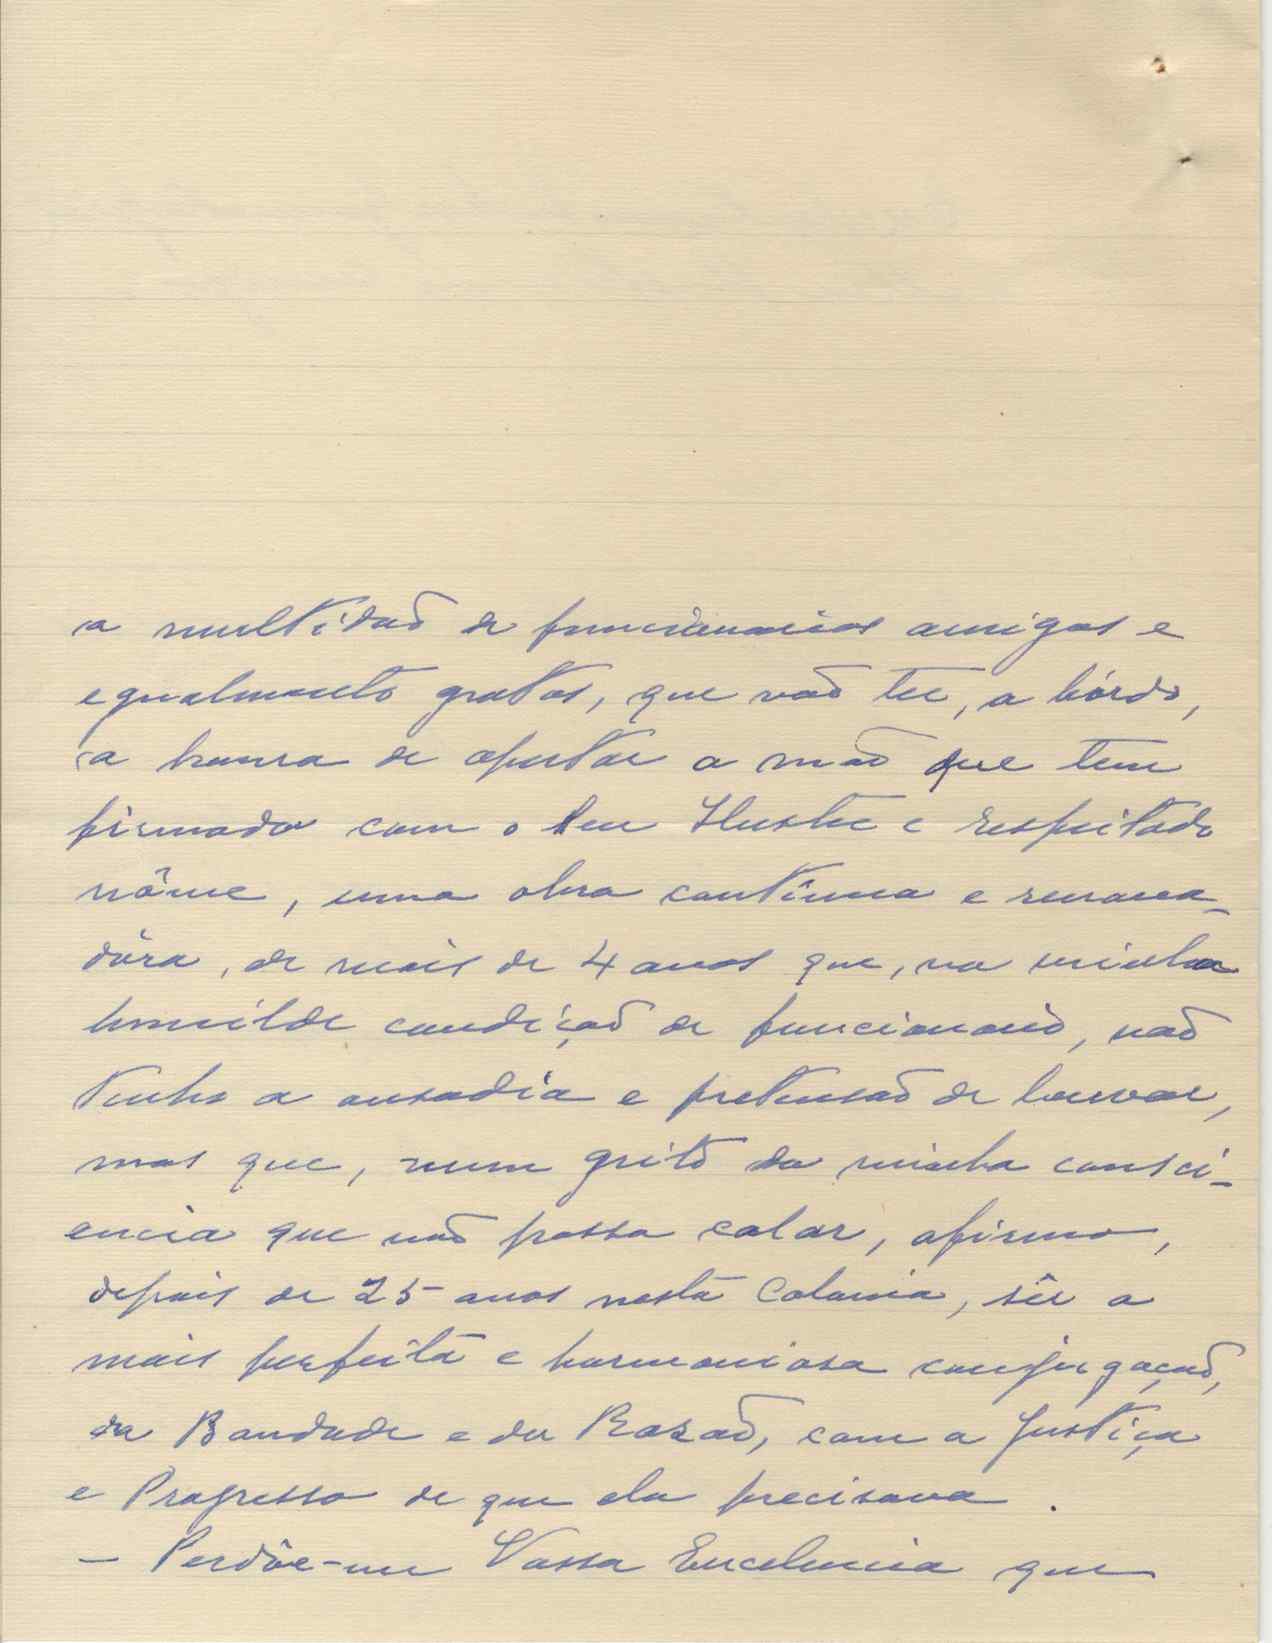 a multidaõ de funcionarios amigos e
egualmente gratos, que vaõ ter, a bórdo,
a honra de apertar a maõ que tem
firmado com o Seu Ilustre e respeitado
nôme, uma obra contînua e renova-
dôra, de mais de 4 anos que, na minha
humilde condiçaõ de funcionario, naõ
tenho a ousadia e pretensaõ de louvar,
mas que, num grito da minha consci-
encia que naõ posso calar, afirmo,
depois de 25 anos nesta Colonia, sêr a
mais perfeita e harmoniosa conjugaçaõ,
da Bondade e da Razaõ, com a Justiça
e Progresso de que ela precisava.
— Perdôe-me Vossa Excelencia que